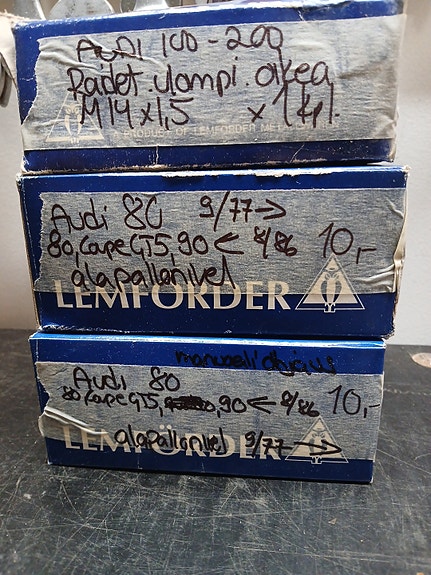 AUDI 100-200
Raidet.ulompi.oikea
M14x1,5 x 1 kpl.
A PRODUCT OF LEMFÖRDER METALL
Audi 80 9/77→
80,Coupe GT5,90 ← 8/86 10,-
alapallonivel
LEMFÖRDER
manuaali ohjaus
Audi 80
80 Coupe GT5, 90 ← 8/86 10,-
alapallonivel 9/77 →
LEMFÖRDER